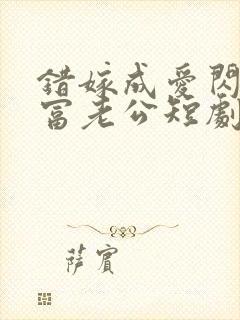 錯嫁成愛閃
富老公短劇
薩賓